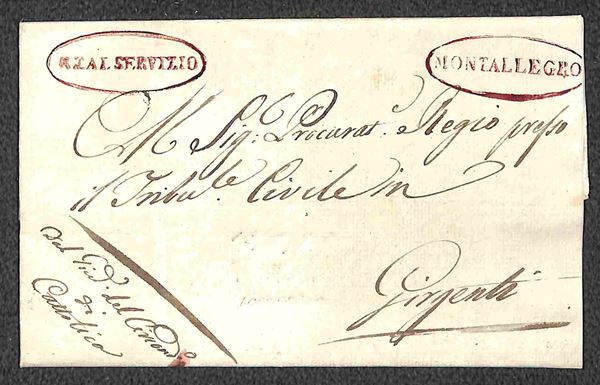 REAL SERVIZIO
MONTALLEGRO
Al Sig.r Procurat.e Regio presso
il Tribu.le Civile in
Girgenti
Dal Giud.e del Circon.o
di
Cattolica